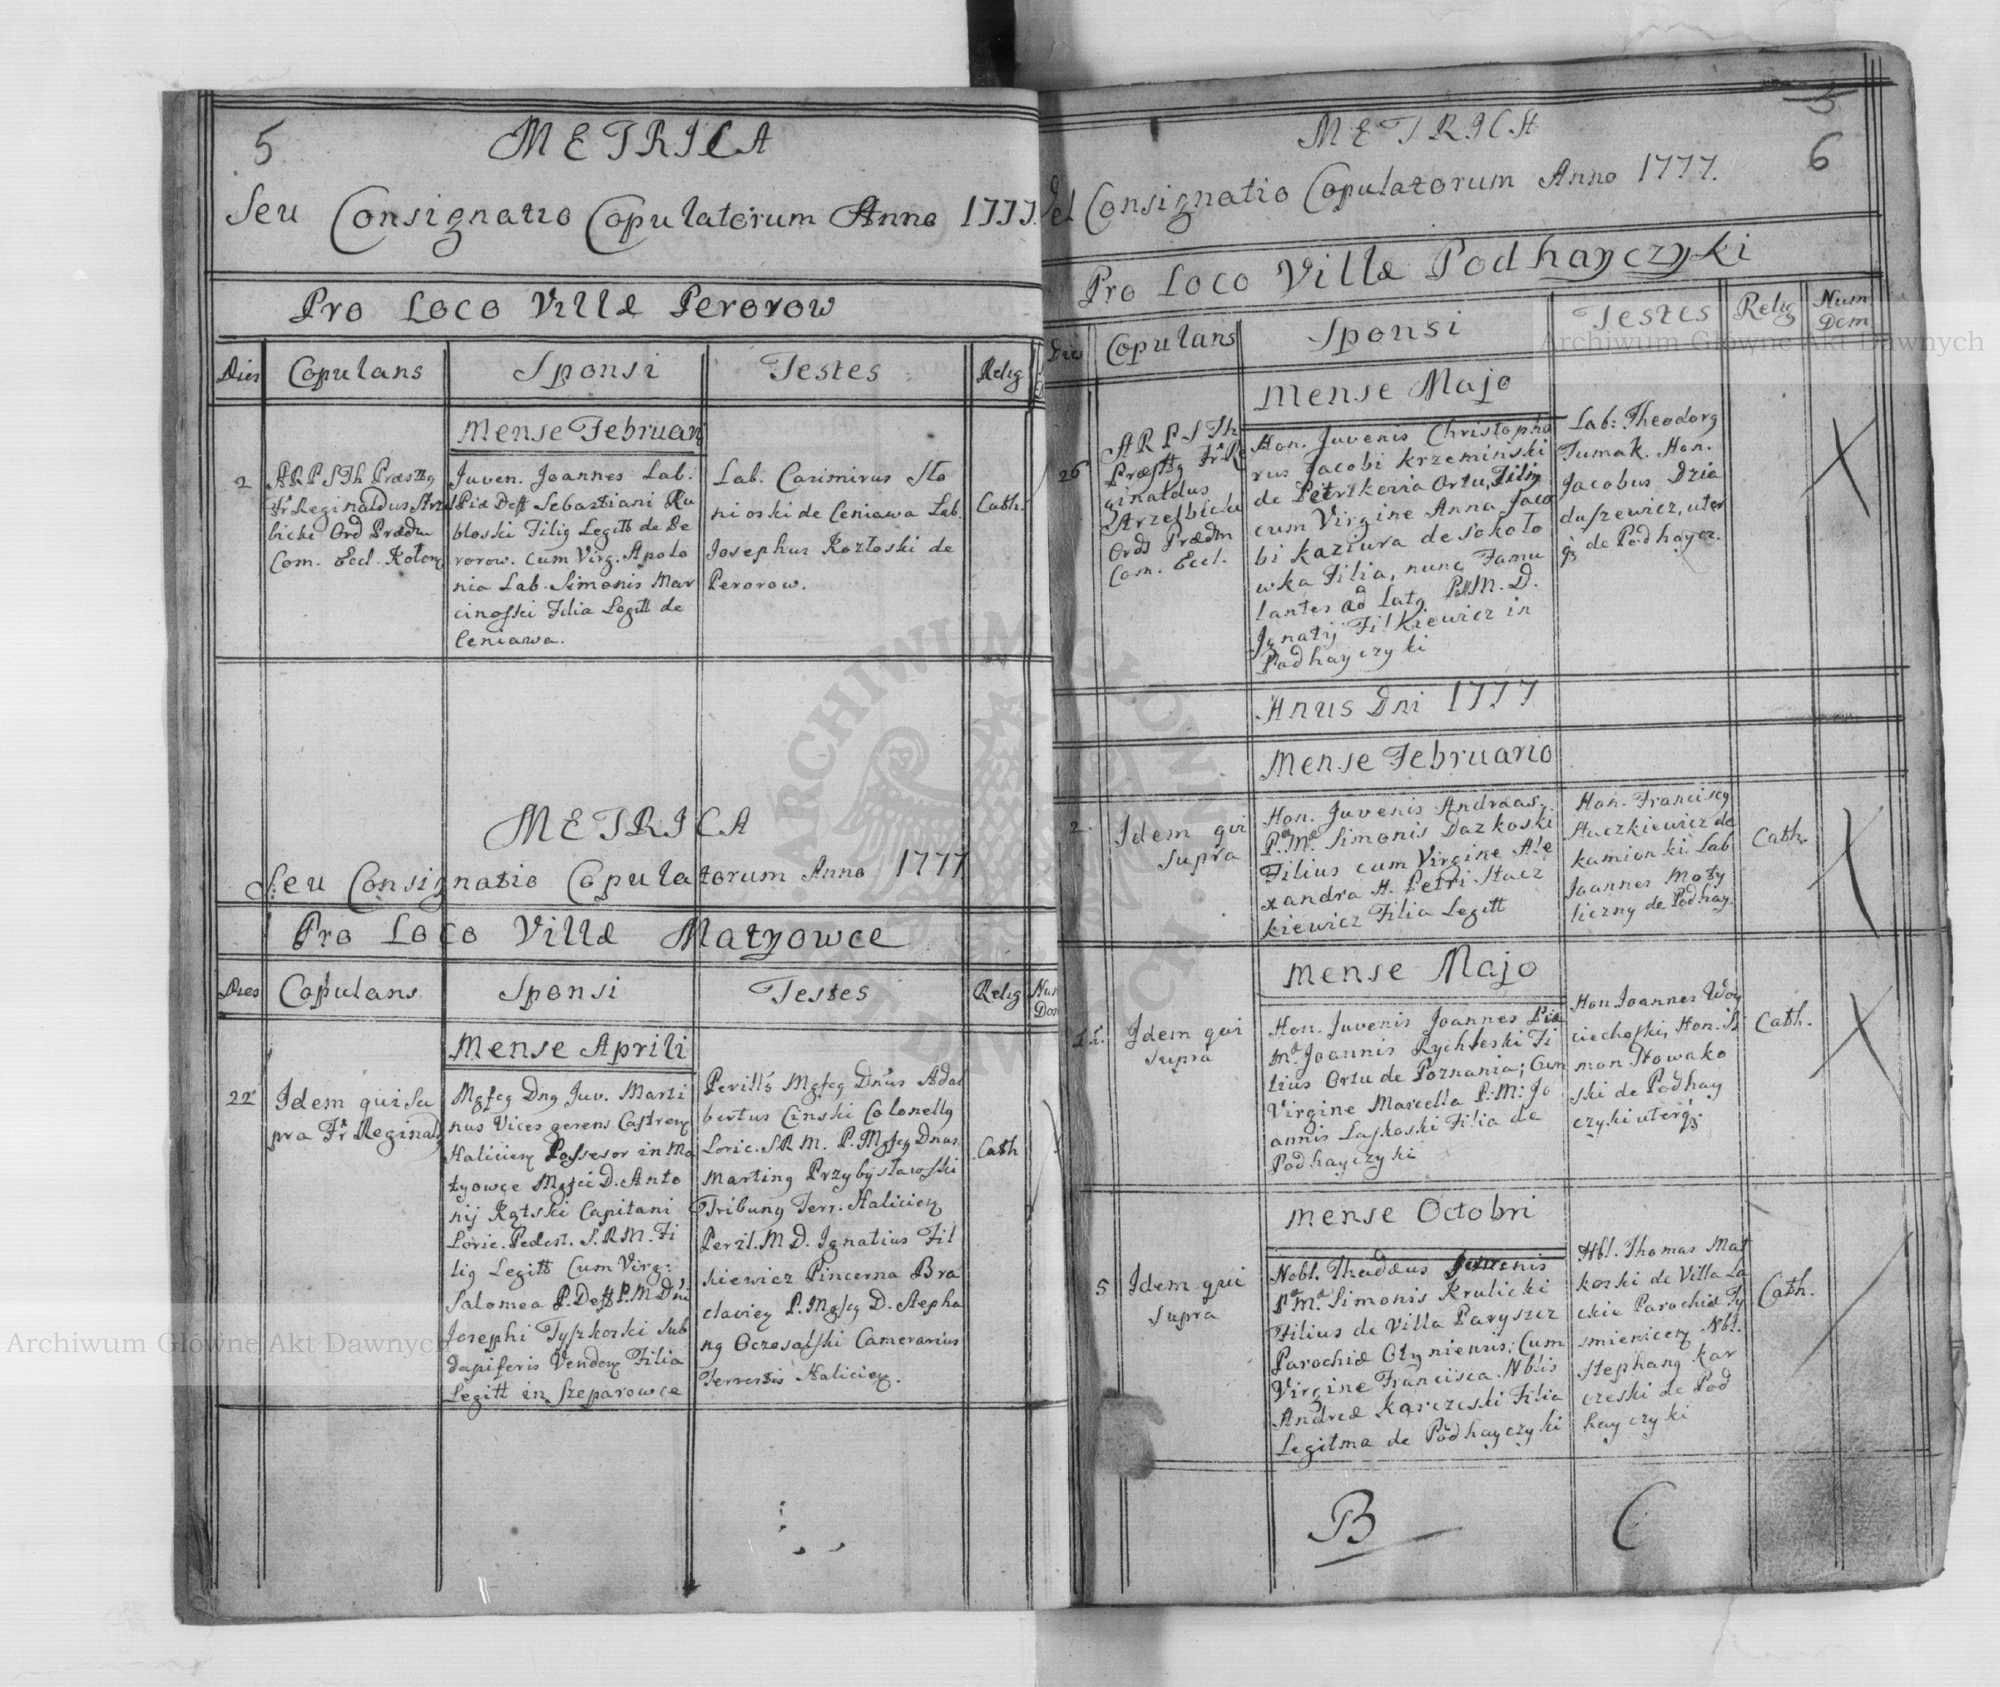 5
METRICA
Seu Consignatio Copulatorum Anno 1777.
Pro Loco Villæ Perorow
Dies Copulans Sponsi Testes Relig
Mense Februari
2
A R P S Th Præsttg
Fr Reginaldus
bicki Ord Prædu
Com. Eccl. Kolom
Juven. Joannes Lab.
Piæ Deff Sebastiani Ru
błoski Filig Legitt de Pe
rorow. cum Virg. Apolo
nia Lab. Simonis Mar
cinoski Filia Legitt de
Ceniawa.
Lab. Casimirus Sto
nioski de Ceniawa Lab.
Josephus Kozłoski de
Perorow.
Cath.
METRICA
Seu Consignatio Copulatorum Anno 1777
Pro Loco Villæ Matyowce
Dies Copulans Sponsi Testes Relig Num
Dom
Mense Aprili
22
Idem qui su
pra Fr Reginald
Mgfcg Dng Juv. Marti
nus Vices gerens Castren
Halicien Possesor in Ma
tyowce Mgfci D. Anto
nij Capitani
Loric. Pedest. S.R.M. Fi
lig Legitt Cum Virg:
Salomea P. Deff P. M Dni
Josephi Tyszkoski Sub
dapiferis Venden Filia
Legitt in Szeparowce
Perills Mgfcg Dnus Adal
bertus Cinski Colonellg
Loric. S R M. P. Mgfcg Dnus
Marting Przybysławski
Tribung Terr. Halicien
Peril. M D. Ignatius Fil
kiewicz Pincerna Bra
clavien P. Mgfcg D. Stepha
ng Oczosalski Camerarius
Terrestis Halicien.
Cath
5
6
METRICA
Vel Consignatio Copulatorum Anno 1777.
Pro Loco Villæ Podhayczyki
Dies Copulans Sponsi Testes Relig Num
Dom
Mense Majo
26
A R P S Th
Præsttg Fr Re
ginaldus
Strzelbicki
Ord Prædm
Com. Eccl.
Hon. Juvenis Christopho
rus Jacobi Krzeminski
de Petrikovia Ortu, Filig
cum Virgine Anna Jaco
bi Kaziura de Sokoło
wka Filia, nunc Famu
lantes ad Latg PM. D.
Ignatij Filkiewicz in
Podhayczyki
Lab: Theodorg
Tumak. Hon.
Jacobus Dzia
duszewicz, uter
q3 de Podhaycz.
Anus Dni 1777
Mense Februario
2.
Idem qui
supra
Hon. Juvenis Andraas
P. M. Simonis Dazkoski
Filius cum Virgine Ale
xandra H. Petri Stacz
kiewicz Filia Legitt
Hon. Franciscg
Staczkiewicz de
kamionki Lab
Joannes Moty
liczny de Podhay
Cath.
Mense Majo
Idem qui
supra
Hon. Juvenis Joannes Piæ
M. Joannis Rychleski Fi
lius Ortu de Poznania; Cum
Virgine Marcella P: M: Jo
annis Laskoski Filia de
Podhayczyki
Hon Joannes Woy
ciechoski, Hon. Si
mon Nowako
ski de Podhay
czyki uterq3.
Cath.
Mense Octobri
5
Idem qui
supra
Nobl. Thadæus Juvenis
P. M. Simonis Krulicki
Filius de Villa Paryszcz
Parochiæ Otyniensis; Cum
Virgine Francisca Nblis
Andreæ Karczeski Filia
Legitma de Podhayczyki
Nbl. Thomas Mat
koski de Villa La
ckie Parochiæ Ty
smienicen Nbl.
Stephang Kar
czeski de Pod
hayczyki
Cath.
B C
Archiwum Główne Akt Dawnych
Archiwum Główne Akt Dawnych
ARCHIWUM GŁÓWNE AKT DAWNYCH